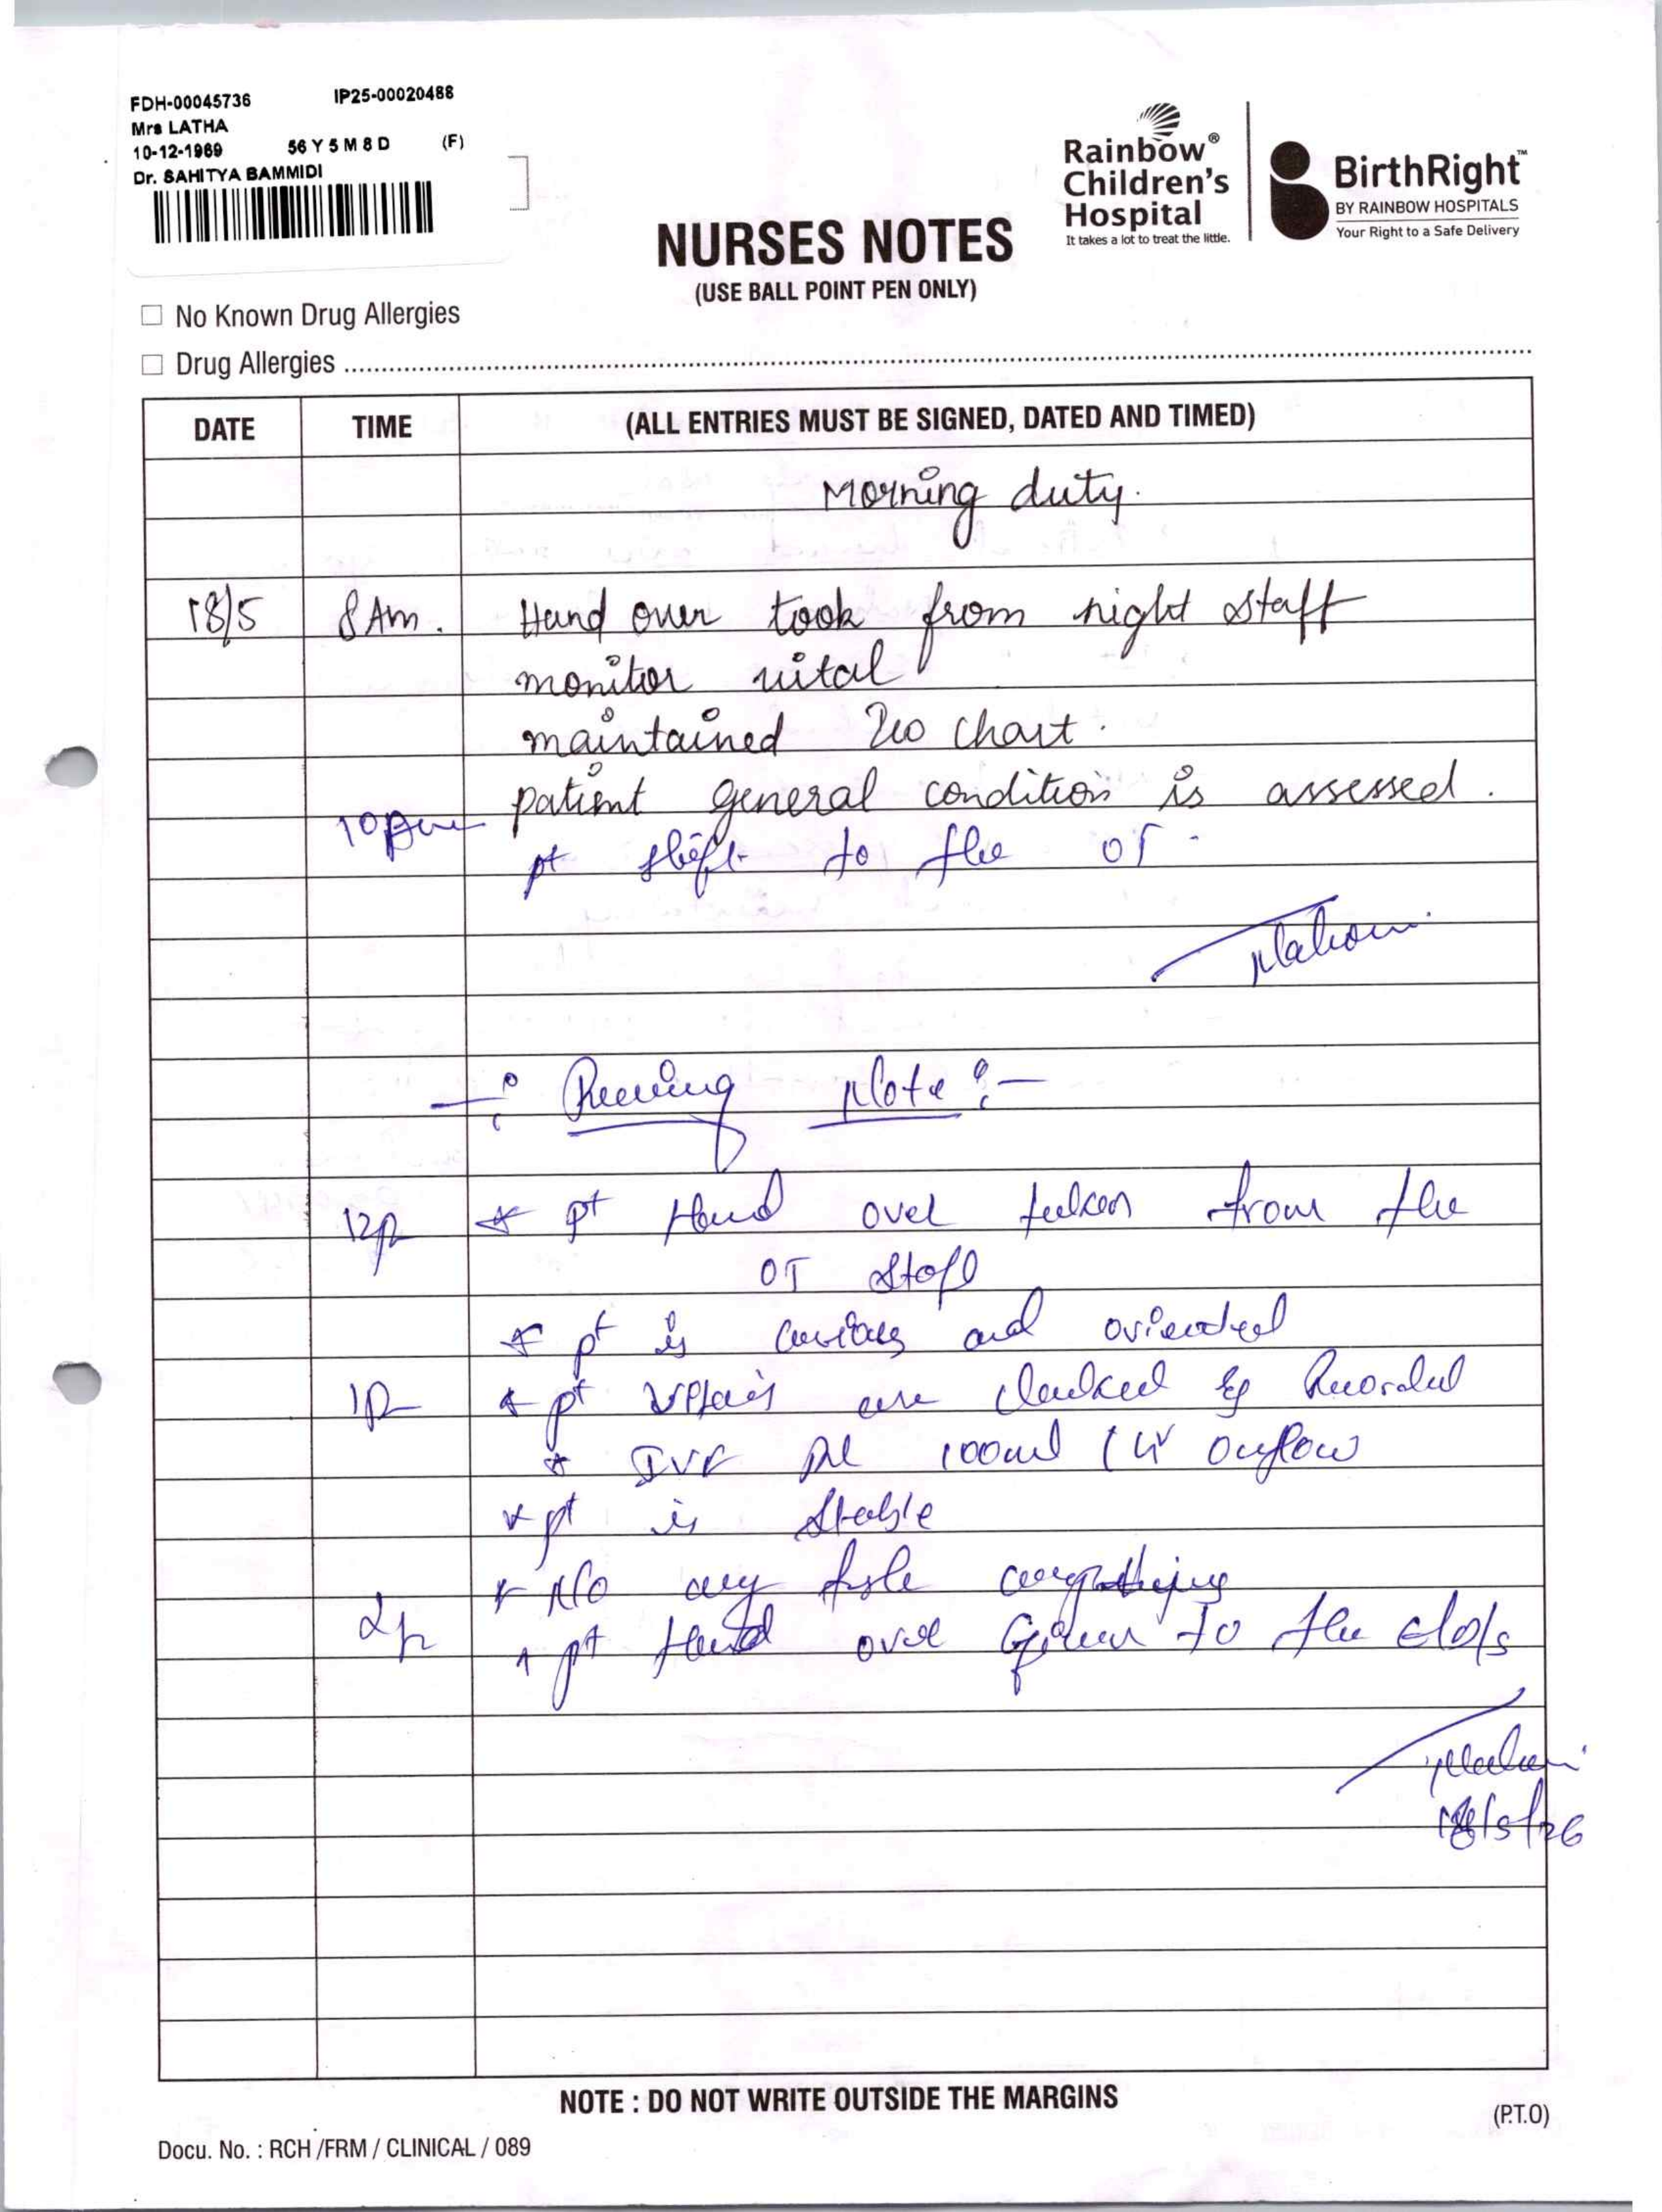 FDH-00045736 IP25-00020488
Mrs LATHA
10-12-1969 56 Y 5 M 8 D (F)
Dr. SAHITYA BAMMIDI
Rainbow®
Children's
Hospital
It takes a lot to treat the little.
BirthRight™
BY RAINBOW HOSPITALS
Your Right to a Safe Delivery
NURSES NOTES
(USE BALL POINT PEN ONLY)
☐ No Known Drug Allergies
☐ Drug Allergies
DATE TIME (ALL ENTRIES MUST BE SIGNED, DATED AND TIMED)
Morning duty.
18/5 8 Am. Hand over took from night staff
monitor vital
maintained chart.
patient general condition is assessed.
pt shift to the OT.
Note :-
12p * pt Hand over taken from the
OT Staff
* pt is and oriented
1p * pt are & Recorded
* IVF 100ml
* pt is Stable
* No any
2p * pt Hand over Given to the
18/5/26
NOTE : DO NOT WRITE OUTSIDE THE MARGINS
(P.T.O)
Docu. No. : RCH /FRM / CLINICAL / 089